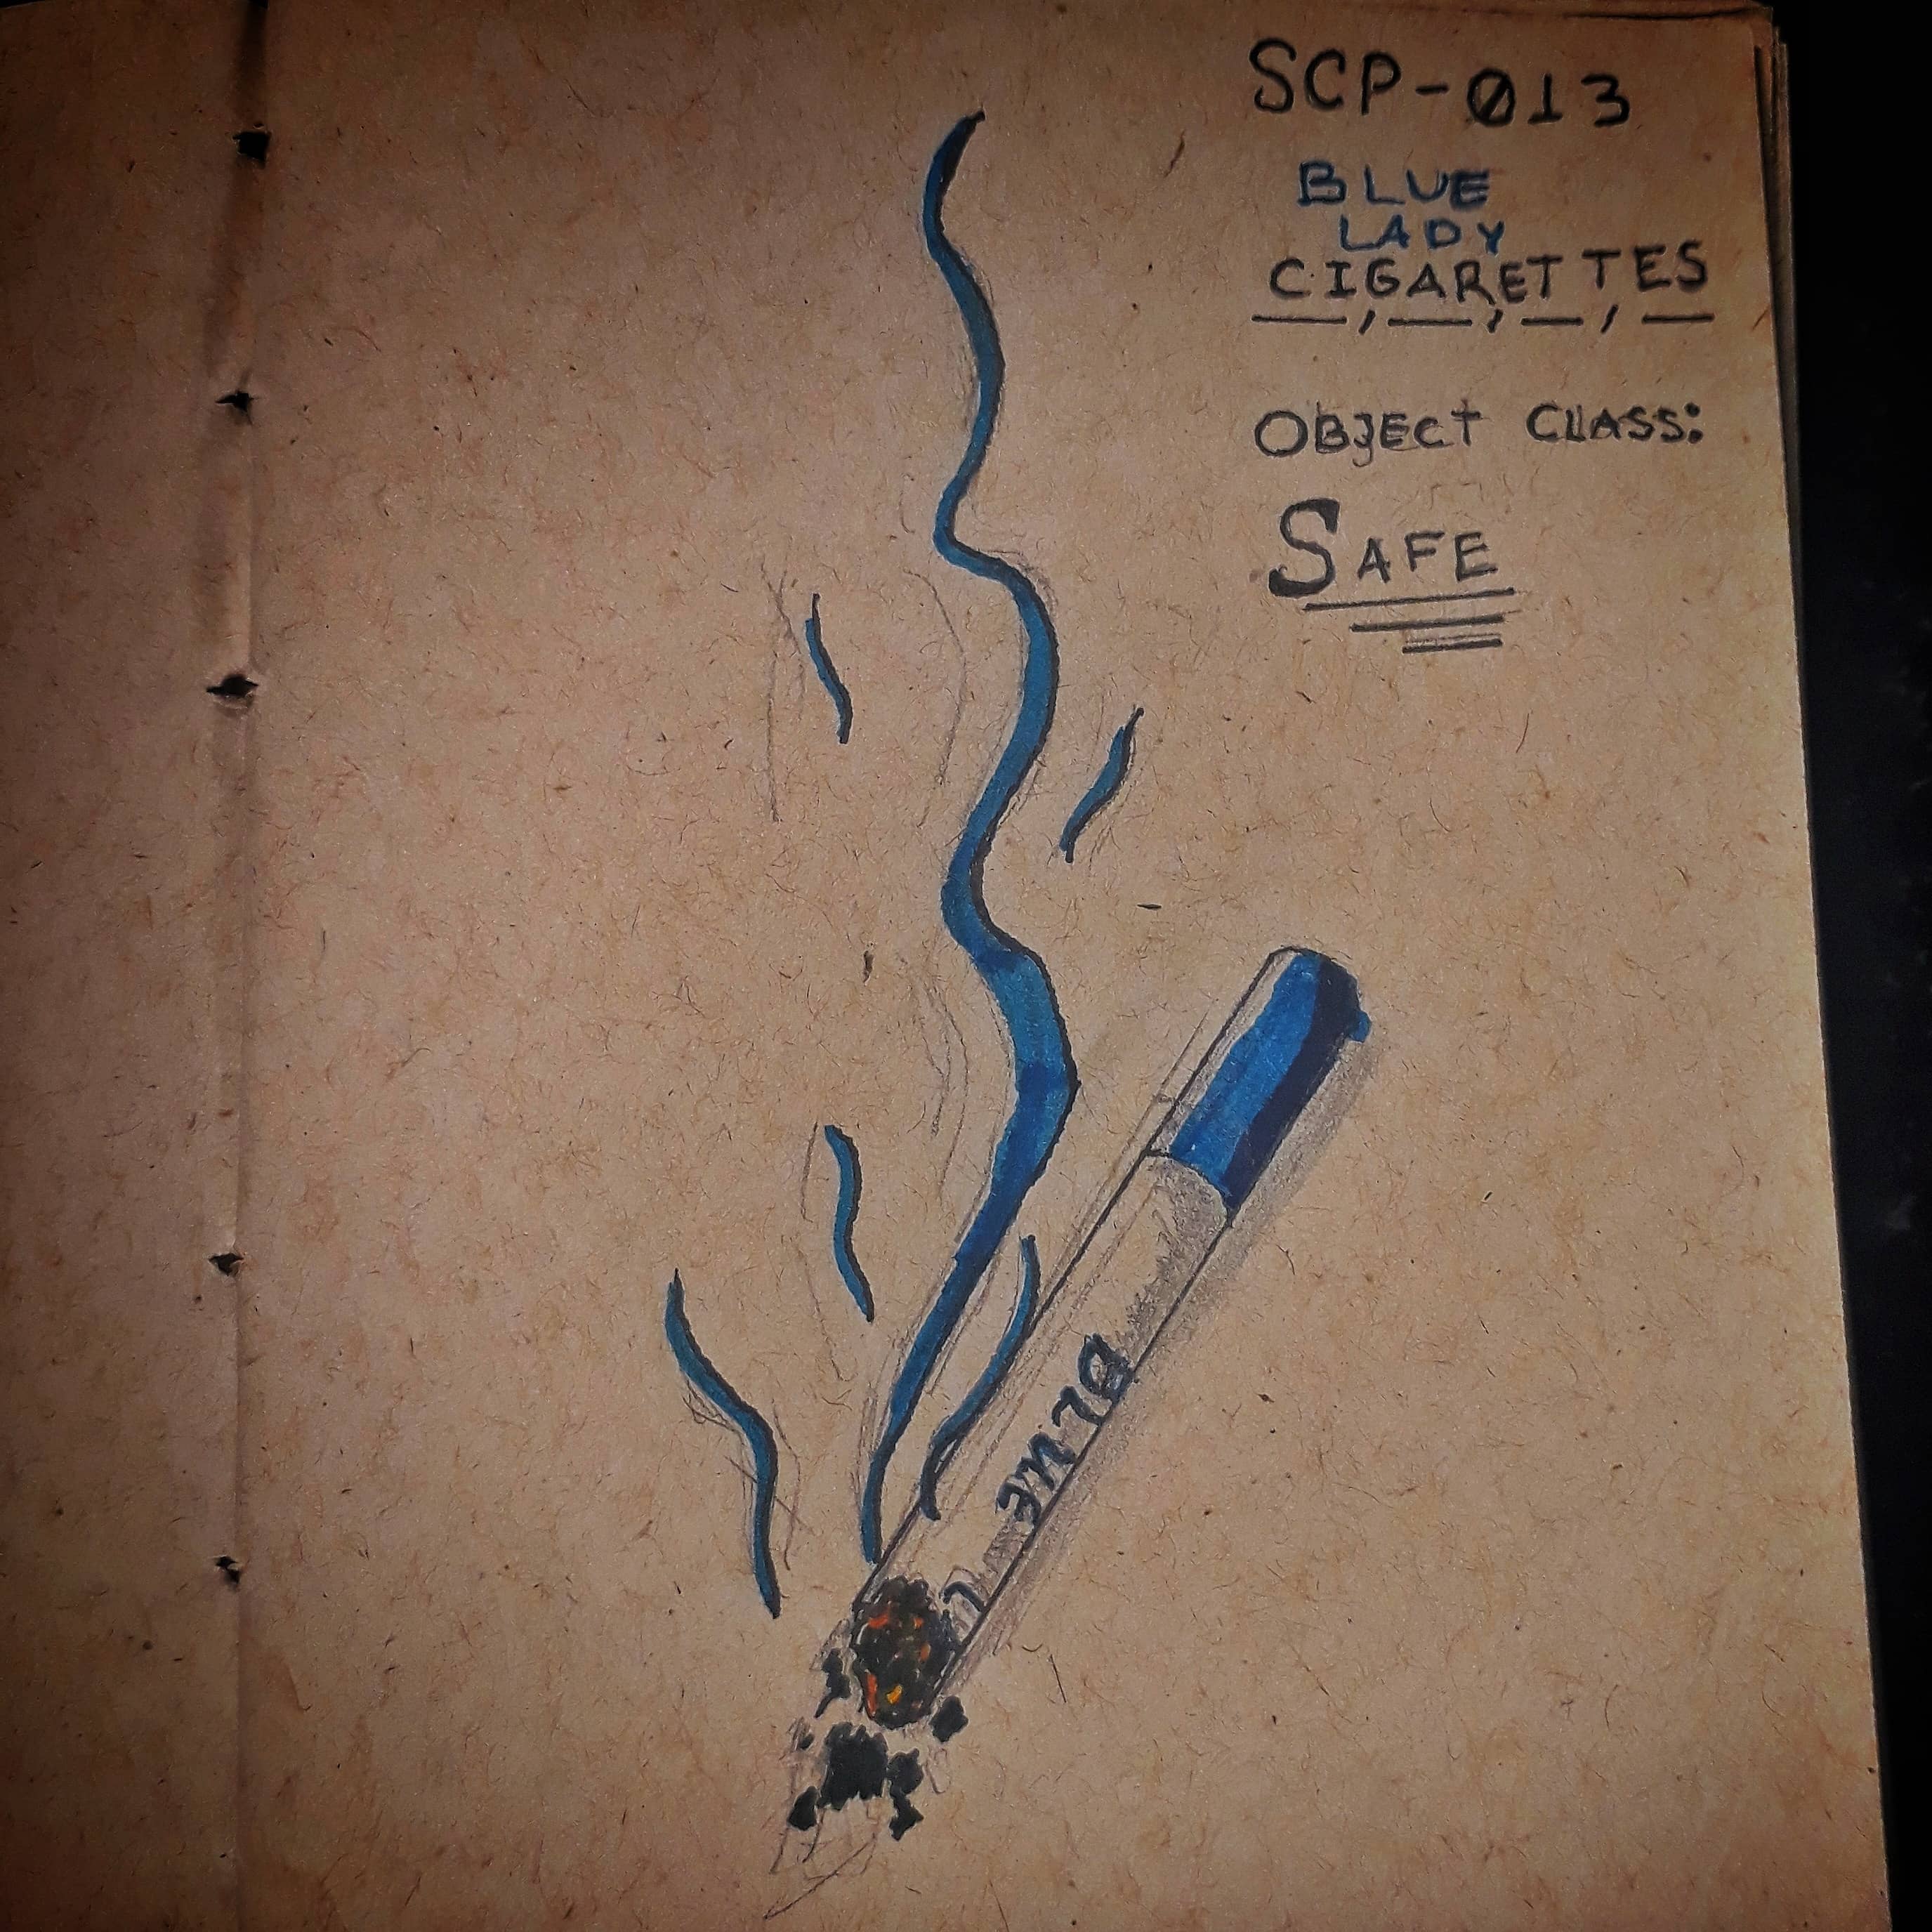 SCP-013
BLUE
LADY
CIGARETTES
OBJECT CLASS:
SAFE
BLUE L